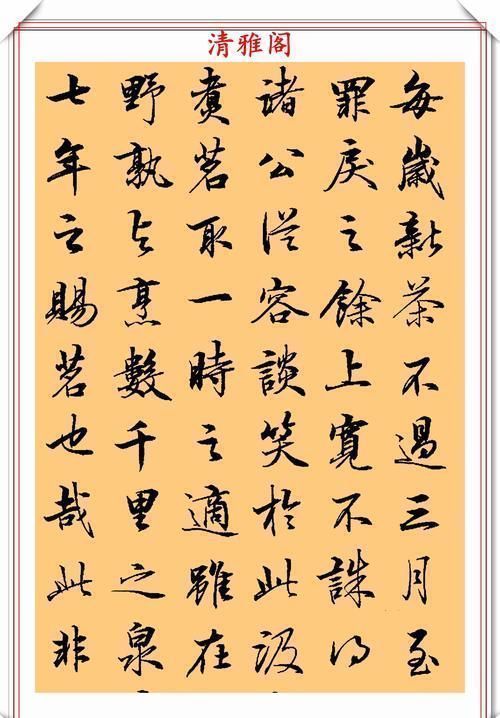 清雅阁
每歲新茶不過三月至
罪戾之餘上寬不誅得
諸公從容談笑於此汲
煑茗取一時之適雖在
野孰與烹數千里之泉
七年之賜茗也哉此非